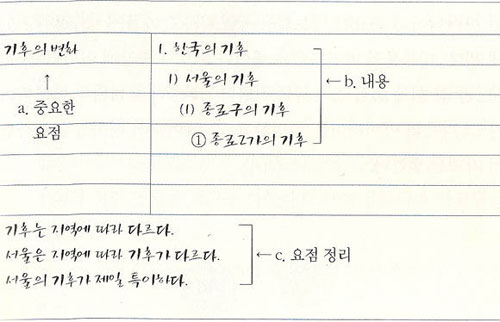 기후의 변화
↑
a. 중요한
요점
1. 한국의 기후
1) 서울의 기후
(1) 종로구의 기후
① 종로2가의 기후
← b. 내용
기후는 지역에 따라 다르다.
서울은 지역에 따라 기후가 다르다.
서울의 기후가 제일 특이하다.
← c. 요점 정리